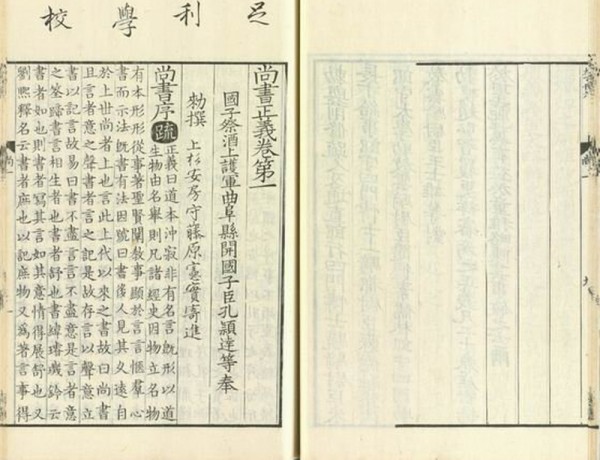 足利學校
尚書正義卷第一
國子祭酒上護軍曲阜縣開國子臣孔穎達等奉
勑撰 上杉安房守藤原憲實寄進
尚書序 疏 正義曰道本沖寂非有名言既形以道
生物由名舉則凡諸經史因物立名物
有本形形從事著聖賢闡教事顯於言言愜羣心
書而示法既書有法因號曰書後人見其久遠自
於上世尚者上也言此上代以來之書故曰尚書
且言者意之聲書者言之記是故存言以聲意立
書以記言故易曰書不盡言言不盡意是言者意
之筌蹄書言相生者也書者舒也書緯璿璣鈐云
書者如也則書者寫其言如其意情得展舒也又
劉熙釋名云書者庶也以記庶物又為著言事得
尚一